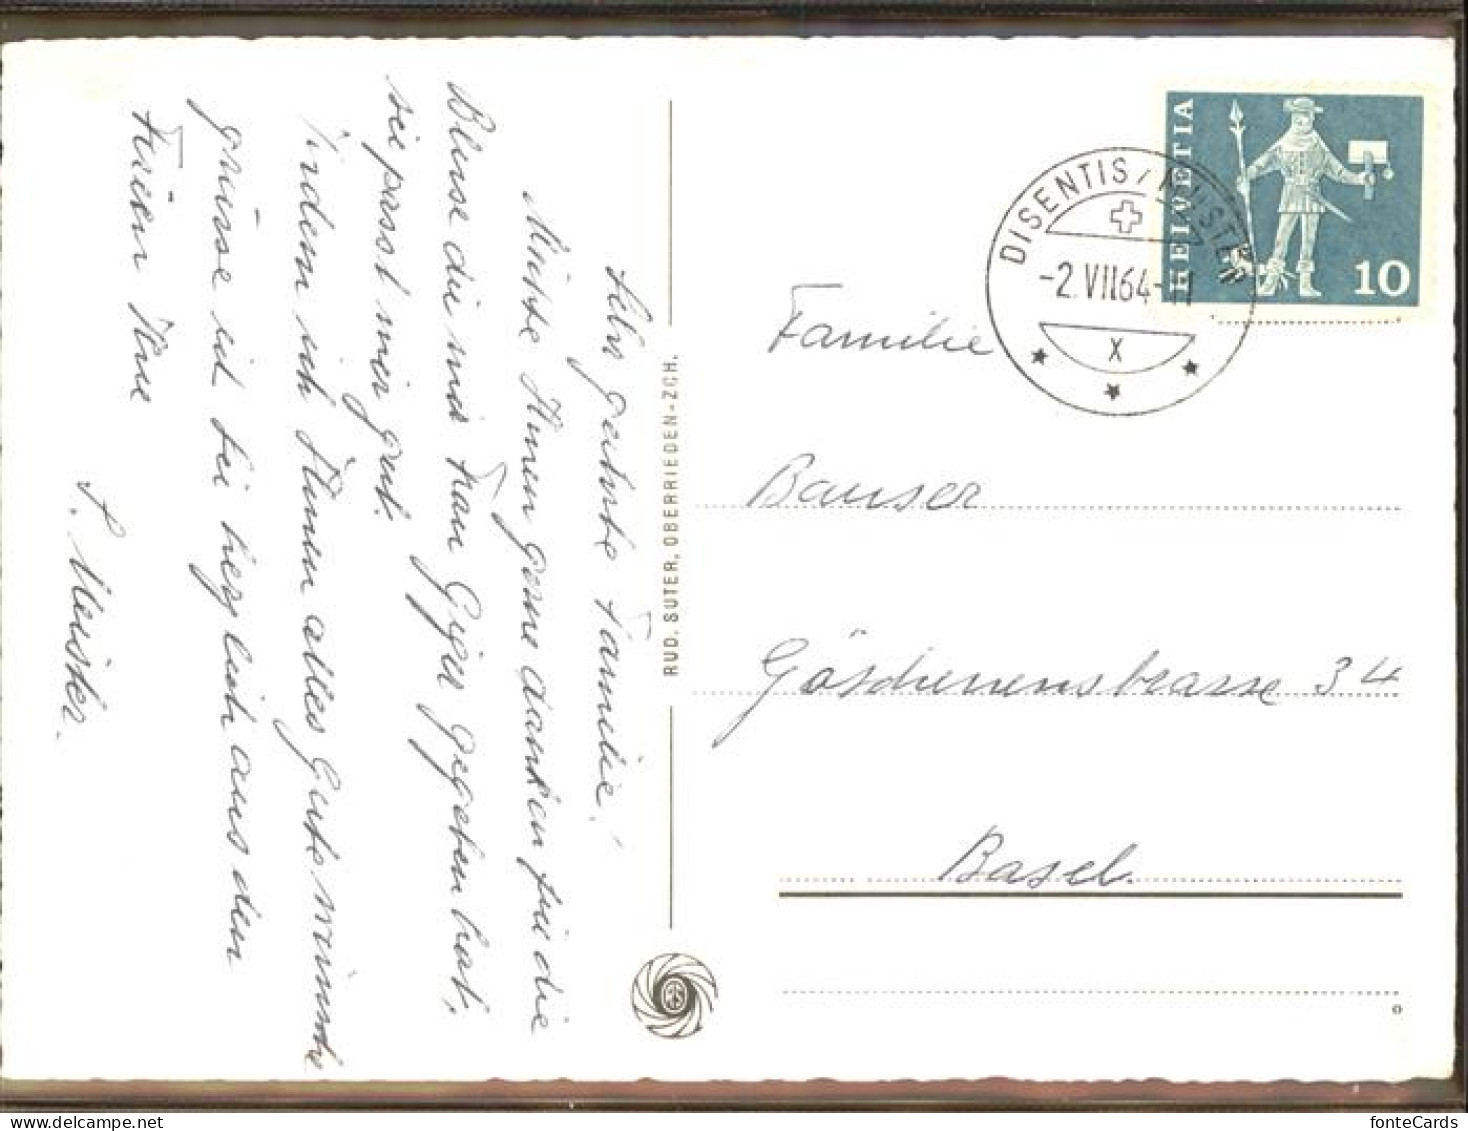 Sehr geehrte Familie!
Möchte Ihnen gerne danken für die
Bluse die mir Frau Giger gegeben hat,
sie passt mir gut.
Indem ich Ihnen alles Gute wünsche
grüsse ich Sie herzlich aus den
Ferien Ihre
P. Meister.
RUD. SUTER, OBERRIEDEN-ZCH.
HELVETIA
10
DISENTIS/MUSTER
-2.VII64-11
X
Familie
Banser
Göschenenstrasse 34
Basel.